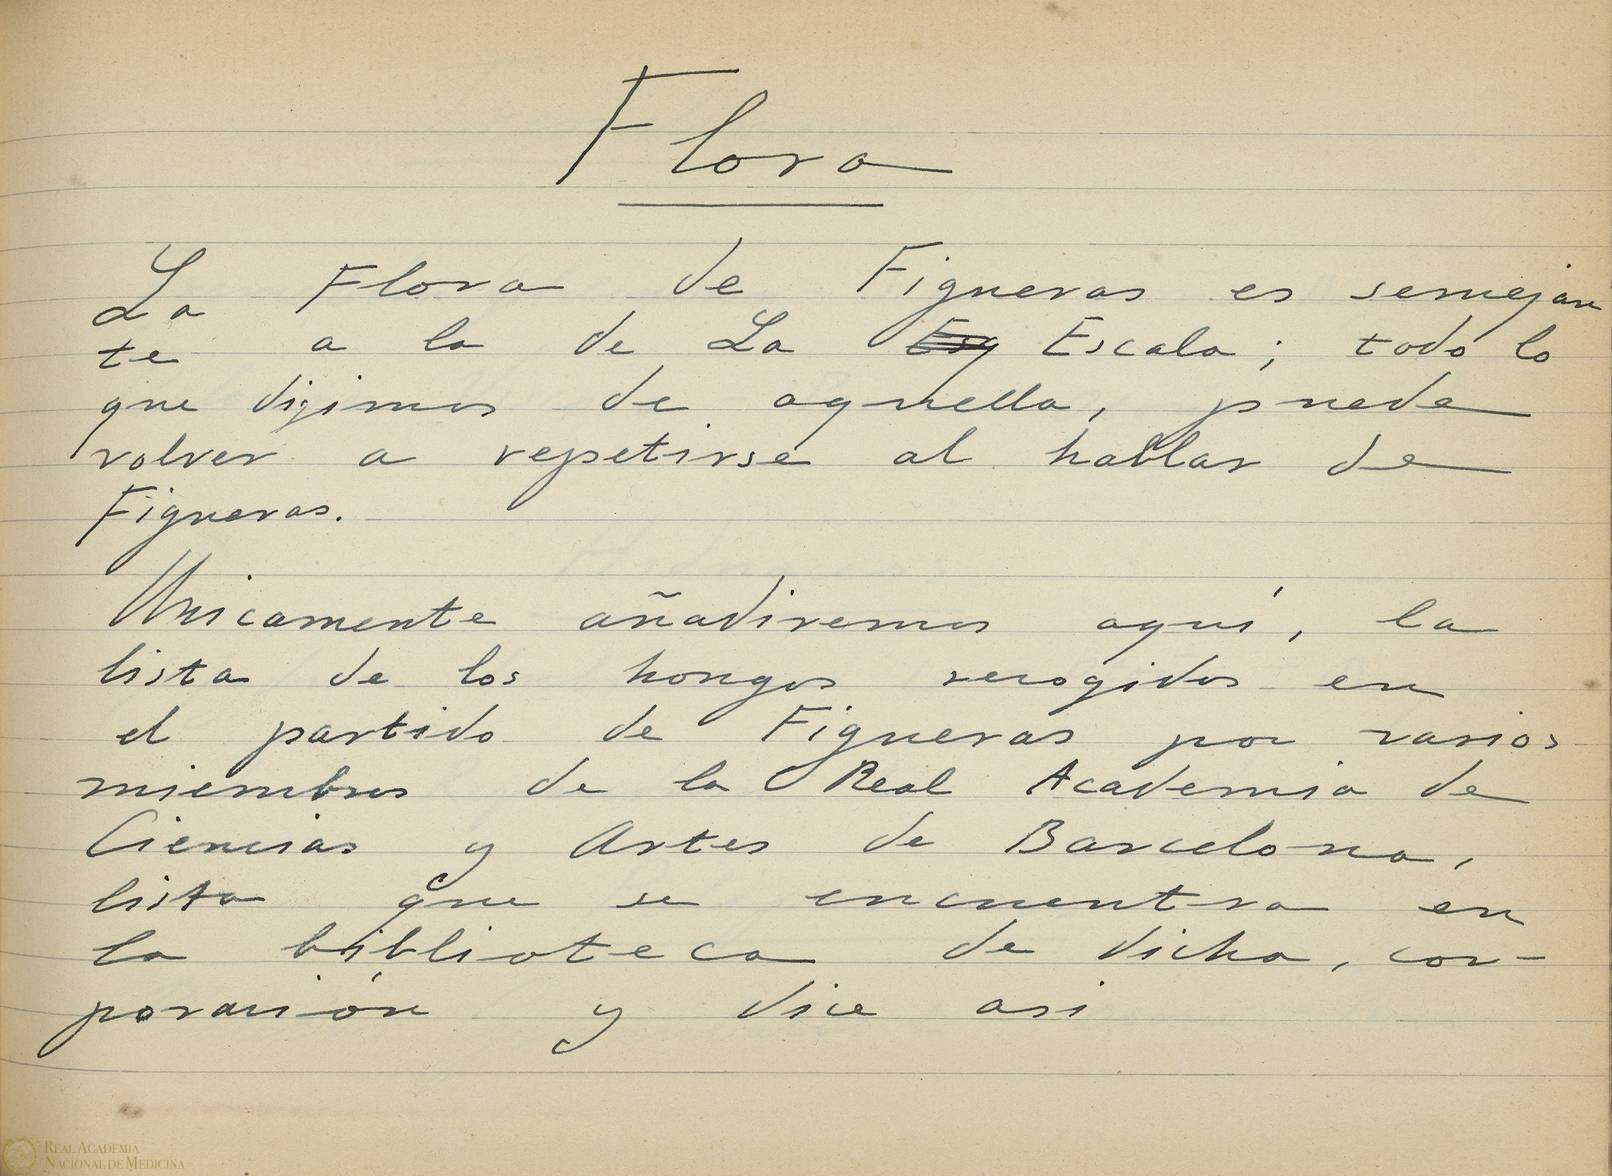 Flora
La Flora de Figueras es semejan
te a la de La Esq Escala; todo lo
que dijimos de aquella, puede
volver a repetirse al hablar de
Figueras.
Unicamente añadiremos aquí, la
lista de los hongos recogidos en
el partido de Figueras por varios
miembros de la Real Academia de
Ciencias y Artes de Barcelona,
lista que se encuentra en
la biblioteca de dicha, cor-
poración y dice asi
REAL ACADEMIA
NACIONAL DE MEDICINA